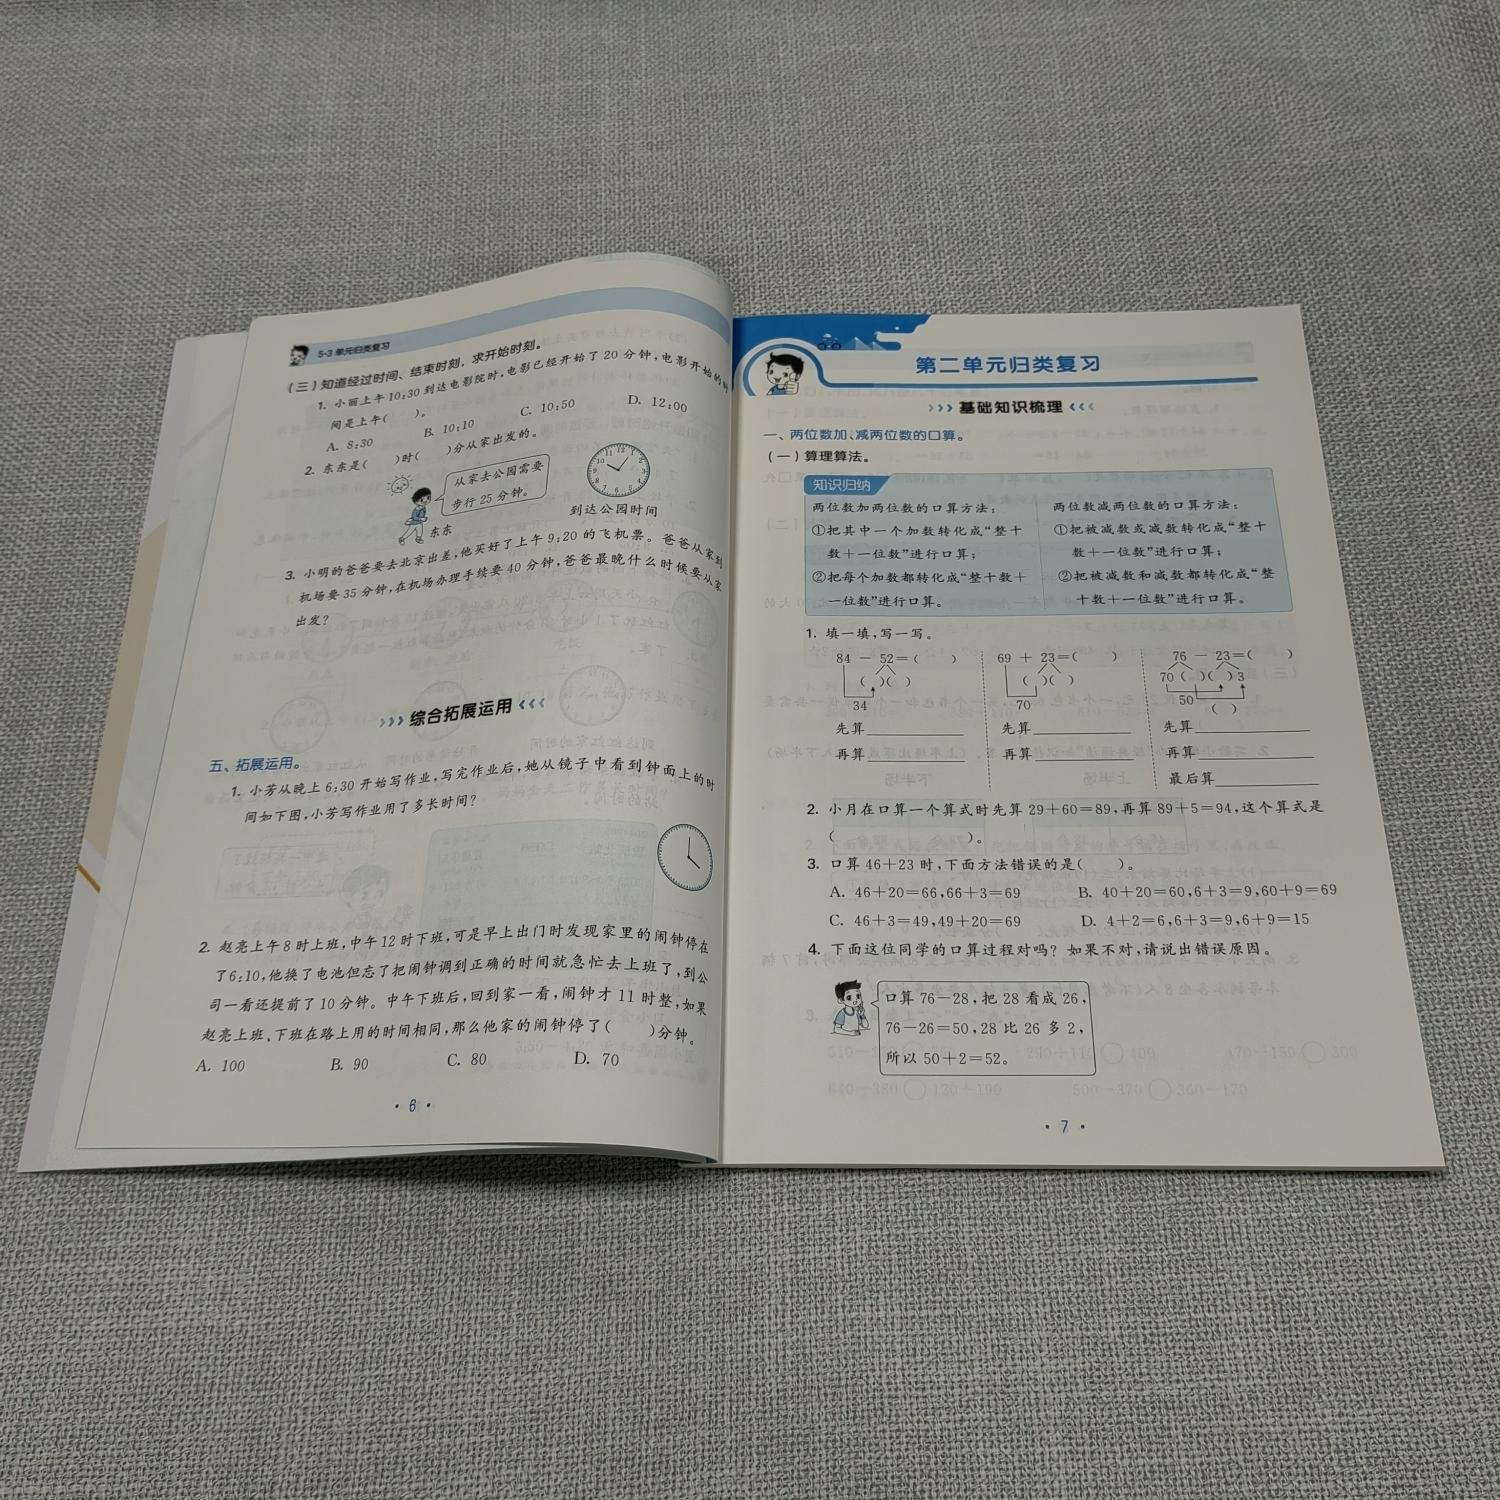 5·3 单元归类复习
(三)知道经过时间、结束时刻,求开始时刻。
1. 小丽上午10:30到达电影院时,电影已经开始了20分钟,电影开始的时
间是上午(    )。
A. 8:30    B. 10:10    C. 10:50    D. 12:00
2. 东东是(    )时(    )分从家出发的。
从家去公园需要
步行25分钟。
东东
到达公园时间
3. 小明的爸爸要去北京出差,他买好了上午9:20的飞机票。爸爸从家到
机场要35分钟,在机场办理手续要40分钟,爸爸最晚什么时候要从家
出发?
综合拓展运用
五、拓展运用。
1. 小芳从晚上6:30开始写作业,写完作业后,她从镜子中看到钟面上的时
间如下图,小芳写作业用了多长时间?
2. 赵亮上午8时上班,中午12时下班,可是早上出门时发现家里的闹钟停在
了6:10,他换了电池但忘了把闹钟调到正确的时间就急忙去上班了,到公
司一看还提前了10分钟。中午下班后,回到家一看,闹钟才11时整,如果
赵亮上班、下班在路上用的时间相同,那么他家的闹钟停了(    )分钟。
A. 100    B. 90    C. 80    D. 70
· 6 ·
第二单元归类复习
基础知识梳理
一、两位数加、减两位数的口算。
(一)算理算法。
知识归纳
两位数加两位数的口算方法:
①把其中一个加数转化成“整十
数+一位数”进行口算;
②把每个加数都转化成“整十数+
一位数”进行口算。
两位数减两位数的口算方法:
①把被减数或减数转化成“整十
数+一位数”进行口算;
②把被减数和减数都转化成“整
十数+一位数”进行口算。
1. 填一填,写一写。
84 - 52=(    )
(    )(    )
34
先算
再算
69 + 23=(    )
(    )(    )
70
先算
再算
76 - 23=(    )
70(    )(    )3
50
(    )
先算
再算
最后算
2. 小月在口算一个算式时先算29+60=89,再算89+5=94,这个算式是
(    )。
3. 口算46+23时,下面方法错误的是(    )。
A. 46+20=66,66+3=69    B. 40+20=60,6+3=9,60+9=69
C. 46+3=49,49+20=69    D. 4+2=6,6+3=9,6+9=15
4. 下面这位同学的口算过程对吗?如果不对,请说出错误原因。
口算76-28,把28看成26,
76-26=50,28比26多2,
所以50+2=52。
· 7 ·